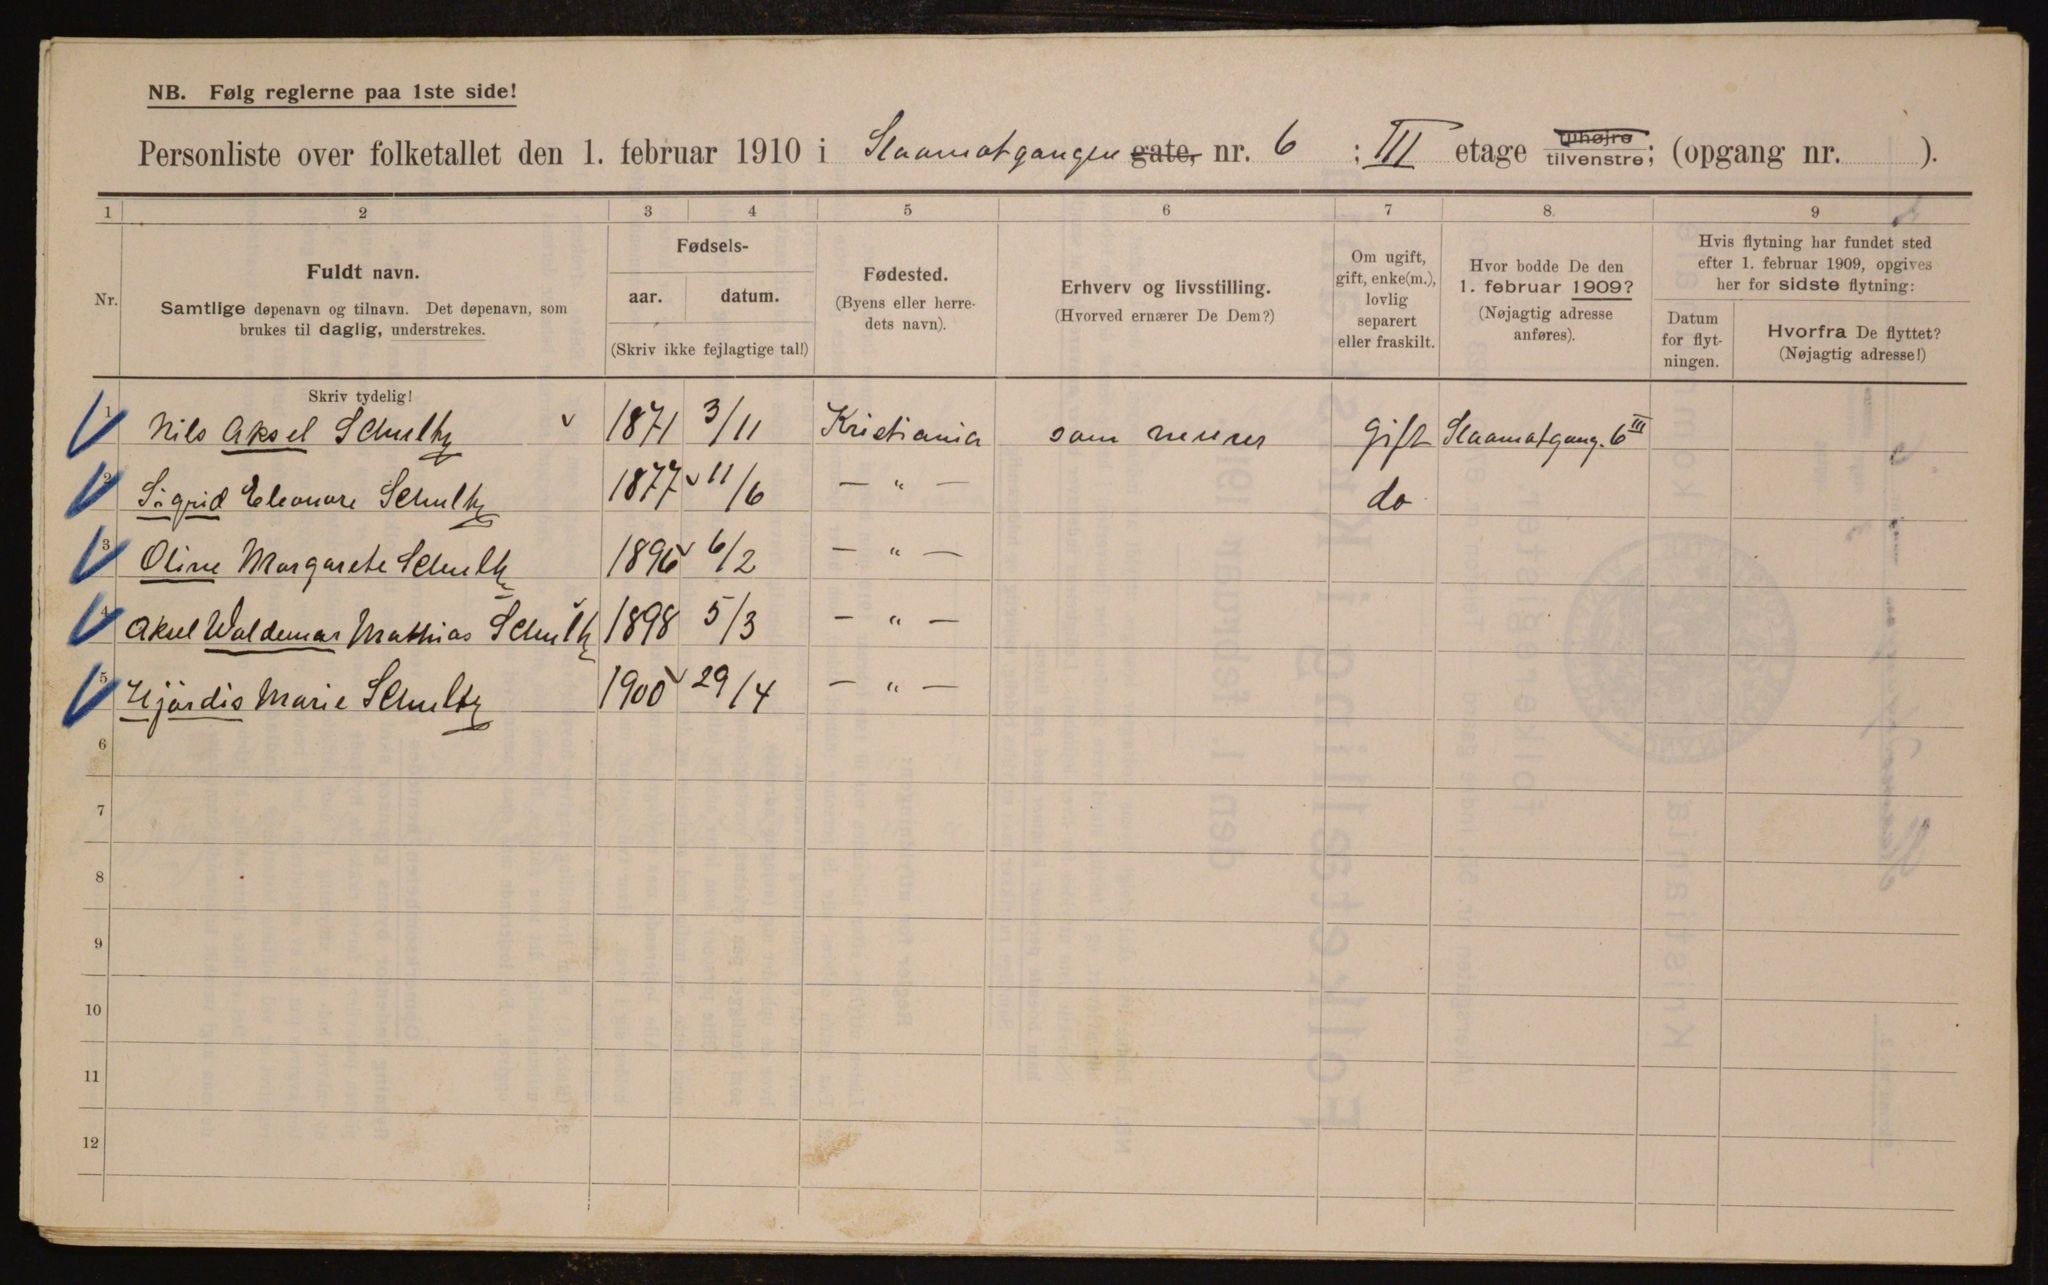 NB. Følg reglerne paa 1ste side!
Personliste over folketallet den 1. februar 1910 i Slaamotgangen gate, nr. 6 ; III etage tilhøjre tilvenstre; (opgang nr. ).
1 2 3 4 5 6 7 8 9
Nr.
Fuldt navn.
Samtlige døpenavn og tilnavn. Det døpenavn, som
brukes til daglig, understrekes.
Fødsels-
aar. datum.
(Skriv ikke fejlagtige tal!)
Fødested.
(Byens eller herre-
dets navn).
Erhverv og livsstilling.
(Hvorved ernærer De Dem?)
Om ugift,
gift, enke(m.),
lovlig
separert
eller fraskilt.
Hvor bodde De den
1. februar 1909?
(Nøjagtig adresse
anføres).
Hvis flytning har fundet sted
efter 1. februar 1909, opgives
her for sidste flytning:
Datum
for flyt-
ningen.
Hvorfra De flyttet?
(Nøjagtig adresse!)
Skriv tydelig!
1 Nils Aksel Schultz 1871 3/11 Kristiania gift Slaamotgang. 6 III
2 Sigrid Eleonore Schultz 1877 11/6 — " — do
3 Oline Margarete Schultz 1896 6/2 — " —
4 Aksel Waldemar Mathias Schultz 1898 5/3 — " —
5 Hjördis Marie Schultz 1900 29/4 — " —
6
7
8
9
10
11
12